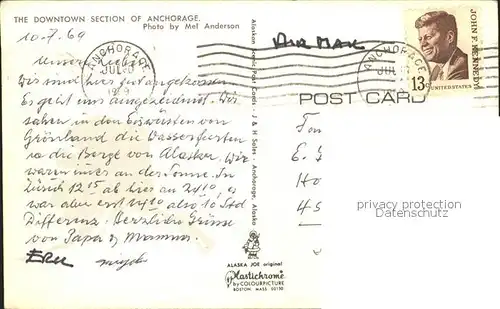 THE DOWNTOWN SECTION OF ANCHORAGE.
Photo by Mel Anderson
10.7.69
AIR MAIL
ANCHORAGE
JUL
ANCHORAGE
JUL
JOHN F. KENNEDY
13¢
UNITED STATES
POST CARD
Unsere Lieben
Wir sind hier gut angekommen
Es geht uns ausgezeichnet. Wir
sahen in den Eiswüsten von
Grönland die Wasserfurten
so die Berge von Alaska. Wir
waren immer an der Sonne. In
Zürich 12 15 ab hier an 24 10, es
war aber erst 14 10 also 10 Std
Differenz. Herzliche Grüsse
von Papa & Mamma.
Alaskan Scenic Post Cards - J & H Sales - Anchorage, Alaska
ALASKA JOE original
Plastichrome®
by COLOURPICTURE
BOSTON, MASS. 02130
E.
Ho
privacy protection
Datenschutz